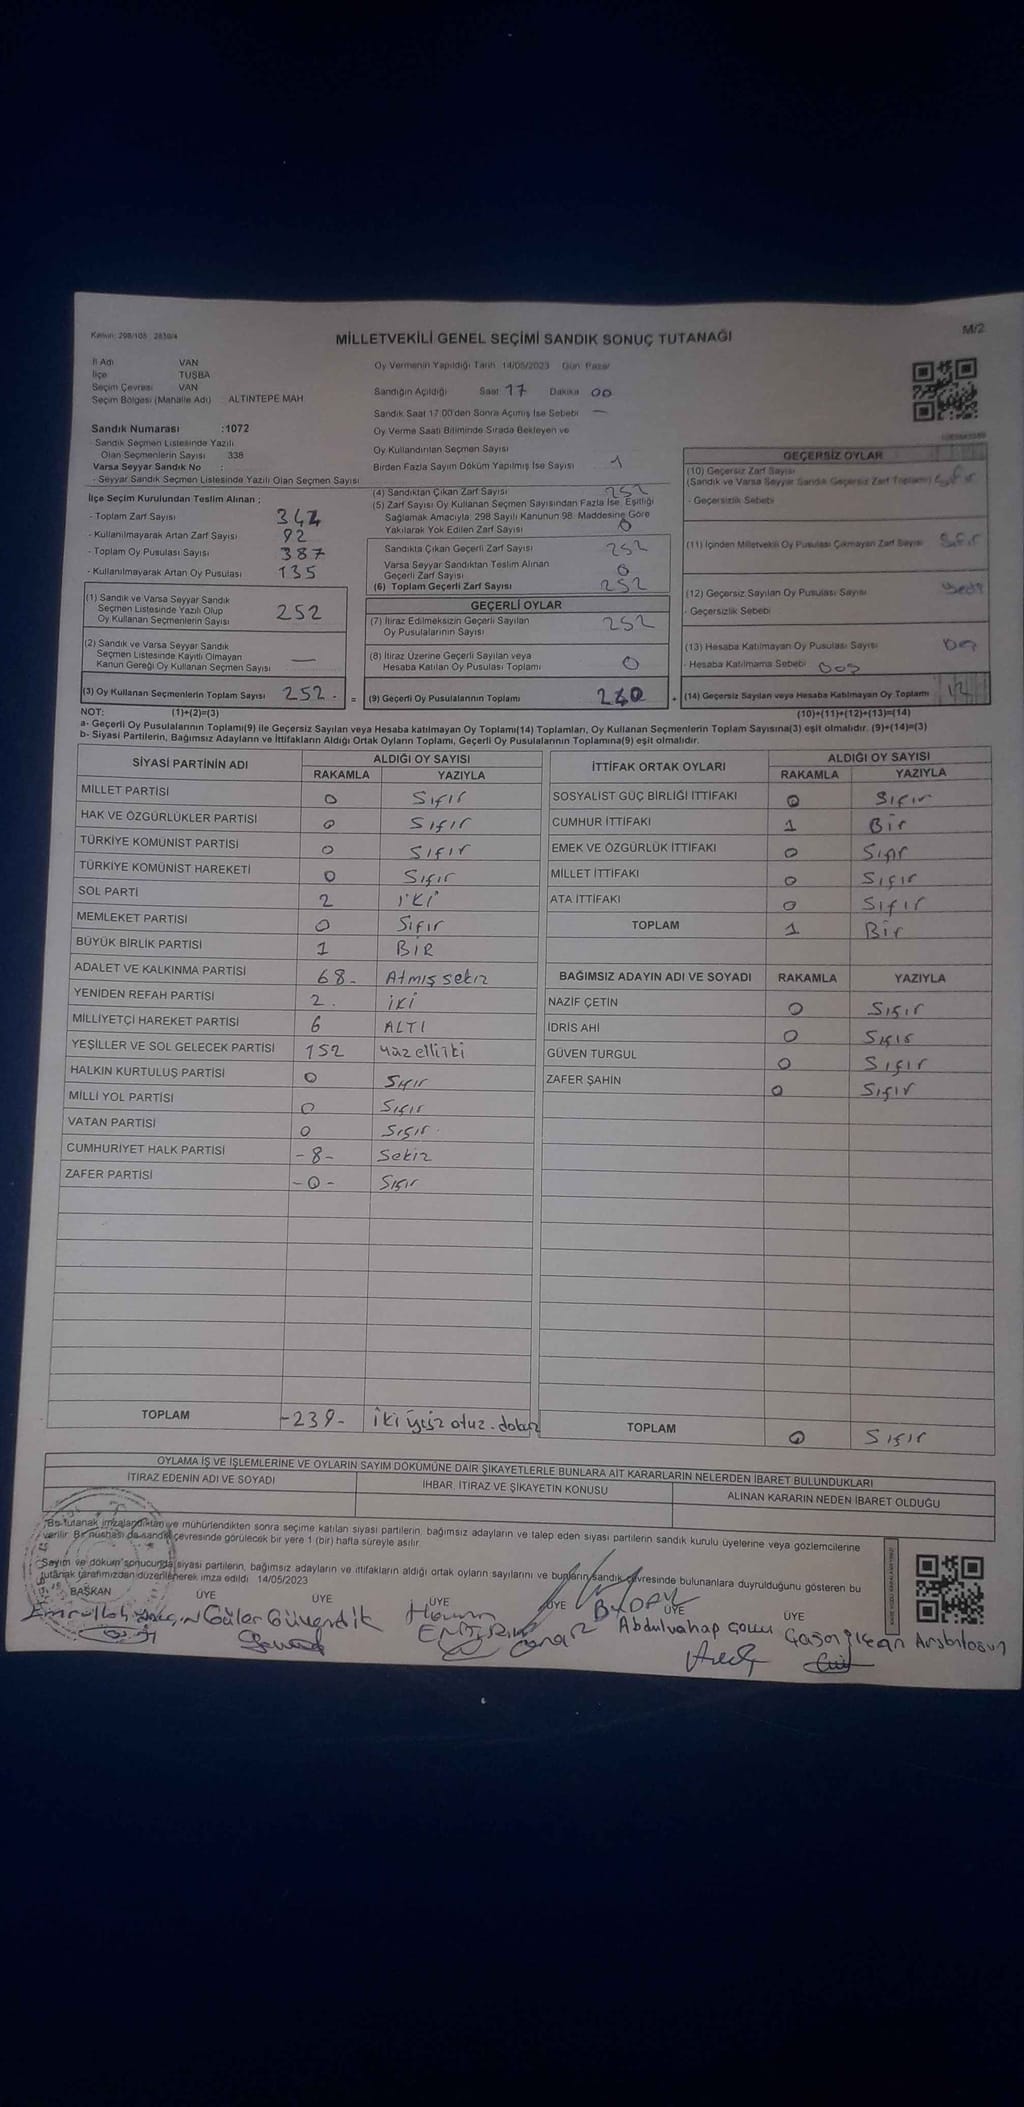 Kanun: 298/105 2839/4
MİLLETVEKİLİ GENEL SEÇİMİ SANDIK SONUÇ TUTANAĞI
M/2
İl Adı VAN
İlçe TUŞBA
Seçim Çevresi VAN
Seçim Bölgesi (Mahalle Adı) ALTINTEPE MAH.
Oy Vermenin Yapıldığı Tarih 14/05/2023 Gün Pazar
Sandığın Açıldığı Saat 17 Dakika 00
Sandık Saat 17.00'den Sonra Açılmış İse Sebebi —
Oy Verme Saati Bitiminde Sırada Bekleyen ve
Oy Kullandırılan Seçmen Sayısı
Birden Fazla Sayım Döküm Yapılmış İse Sayısı 1
Sandık Numarası :1072
Sandık Seçmen Listesinde Yazılı
Olan Seçmenlerin Sayısı 338
Varsa Seyyar Sandık No :
- Seyyar Sandık Seçmen Listesinde Yazılı Olan Seçmen Sayısı
İlçe Seçim Kurulundan Teslim Alınan ;
- Toplam Zarf Sayısı 344
- Kullanılmayarak Artan Zarf Sayısı 92
- Toplam Oy Pusulası Sayısı 387
- Kullanılmayarak Artan Oy Pusulası 135
(1) Sandık ve Varsa Seyyar Sandık
Seçmen Listesinde Yazılı Olup
Oy Kullanan Seçmenlerin Sayısı 252
(2) Sandık ve Varsa Seyyar Sandık
Seçmen Listesinde Kayıtlı Olmayan
Kanun Gereği Oy Kullanan Seçmen Sayısı —
(3) Oy Kullanan Seçmenlerin Toplam Sayısı 252.
(4) Sandıktan Çıkan Zarf Sayısı 252
(5) Zarf Sayısı Oy Kullanan Seçmen Sayısından Fazla İse, Eşitliği
Sağlamak Amacıyla, 298 Sayılı Kanunun 98. Maddesine Göre
Yakılarak Yok Edilen Zarf Sayısı 0
Sandıkta Çıkan Geçerli Zarf Sayısı 252
Varsa Seyyar Sandıktan Teslim Alınan
Geçerli Zarf Sayısı 0
(6) Toplam Geçerli Zarf Sayısı 252
GEÇERLİ OYLAR
(7) İtiraz Edilmeksizin Geçerli Sayılan
Oy Pusulalarının Sayısı 252
(8) İtiraz Üzerine Geçerli Sayılan veya
Hesaba Katılan Oy Pusulası Toplamı 0
= (9) Geçerli Oy Pusulalarının Toplamı 240
GEÇERSİZ OYLAR
(10) Geçersiz Zarf Sayısı
(Sandık ve Varsa Seyyar Sandık Geçersiz Zarf Toplamı) Sıfır
- Geçersizlik Sebebi
(11) İçinden Milletvekili Oy Pusulası Çıkmayan Zarf Sayısı Sıfır
(12) Geçersiz Sayılan Oy Pusulası Sayısı Yedi
- Geçersizlik Sebebi
(13) Hesaba Katılmayan Oy Pusulası Sayısı
- Hesaba Katılmama Sebebi
+ (14) Geçersiz Sayılan veya Hesaba Katılmayan Oy Toplamı 12
NOT: (1)+(2)=(3)
(10)+(11)+(12)+(13)=(14)
a- Geçerli Oy Pusulalarının Toplamı(9) ile Geçersiz Sayılan veya Hesaba katılmayan Oy Toplamı(14) Toplamları, Oy Kullanan Seçmenlerin Toplam Sayısına(3) eşit olmalıdır. (9)+(14)=(3)
b- Siyasi Partilerin, Bağımsız Adayların ve İttifakların Aldığı Ortak Oyların Toplamı, Geçerli Oy Pusulalarının Toplamına(9) eşit olmalıdır.
SİYASİ PARTİNİN ADI ALDIĞI OY SAYISI
RAKAMLA YAZIYLA
MİLLET PARTİSİ 0 Sıfır
HAK VE ÖZGÜRLÜKLER PARTİSİ 0 Sıfır
TÜRKİYE KOMÜNİST PARTİSİ 0 Sıfır
TÜRKİYE KOMÜNİST HAREKETİ 0 Sıfır
SOL PARTİ 2 iki
MEMLEKET PARTİSİ 0 Sıfır
BÜYÜK BİRLİK PARTİSİ 1 BİR
ADALET VE KALKINMA PARTİSİ 68- Atmış sekiz
YENİDEN REFAH PARTİSİ 2. iki
MİLLİYETÇİ HAREKET PARTİSİ 6 ALTI
YEŞİLLER VE SOL GELECEK PARTİSİ 152 yüz elli iki
HALKIN KURTULUŞ PARTİSİ 0 Sıfır
MİLLİ YOL PARTİSİ 0 Sıfır
VATAN PARTİSİ 0 Sıfır.
CUMHURİYET HALK PARTİSİ -8- Sekiz
ZAFER PARTİSİ -0- Sıfır
TOPLAM -239- iki yüz otuz-dokuz
İTTİFAK ORTAK OYLARI ALDIĞI OY SAYISI
RAKAMLA YAZIYLA
SOSYALİST GÜÇ BİRLİĞİ İTTİFAKI 0 Sıfır
CUMHUR İTTİFAKI 1 Bir
EMEK VE ÖZGÜRLÜK İTTİFAKI 0 Sıfır
MİLLET İTTİFAKI 0 Sıfır
ATA İTTİFAKI 0 Sıfır
TOPLAM 1 Bir
BAĞIMSIZ ADAYIN ADI VE SOYADI RAKAMLA YAZIYLA
NAZİF ÇETİN 0 Sıfır
İDRİS AHİ 0 Sıfır
GÜVEN TURGUL 0 Sıfır
ZAFER ŞAHİN 0 Sıfır
TOPLAM 0 Sıfır
OYLAMA İŞ VE İŞLEMLERİNE VE OYLARIN SAYIM DÖKÜMÜNE DAİR ŞİKAYETLERLE BUNLARA AİT KARARLARIN NELERDEN İBARET BULUNDUKLARI
İTİRAZ EDENİN ADI VE SOYADI İHBAR, İTİRAZ VE ŞİKAYETİN KONUSU ALINAN KARARIN NEDEN İBARET OLDUĞU
Bu tutanak imzalandıktan ve mühürlendikten sonra seçime katılan siyasi partilerin, bağımsız adayların ve talep eden siyasi partilerin sandık kurulu üyelerine veya gözlemcilerine
verilir. Bir nüshası da sandık çevresinde görülecek bir yere 1 (bir) hafta süreyle asılır.
Sayım ve döküm sonucunda siyasi partilerin, bağımsız adayların ve ittifakların aldığı ortak oyların sayılarını ve bunların sandık çevresinde bulunanlara duyrulduğunu gösteren bu
tutanak tarafımızdan düzenlenerek imza edildi. 14/05/2023
BAŞKAN ÜYE ÜYE ÜYE ÜYE ÜYE ÜYE
Güler Güvendik
Abdulvahap